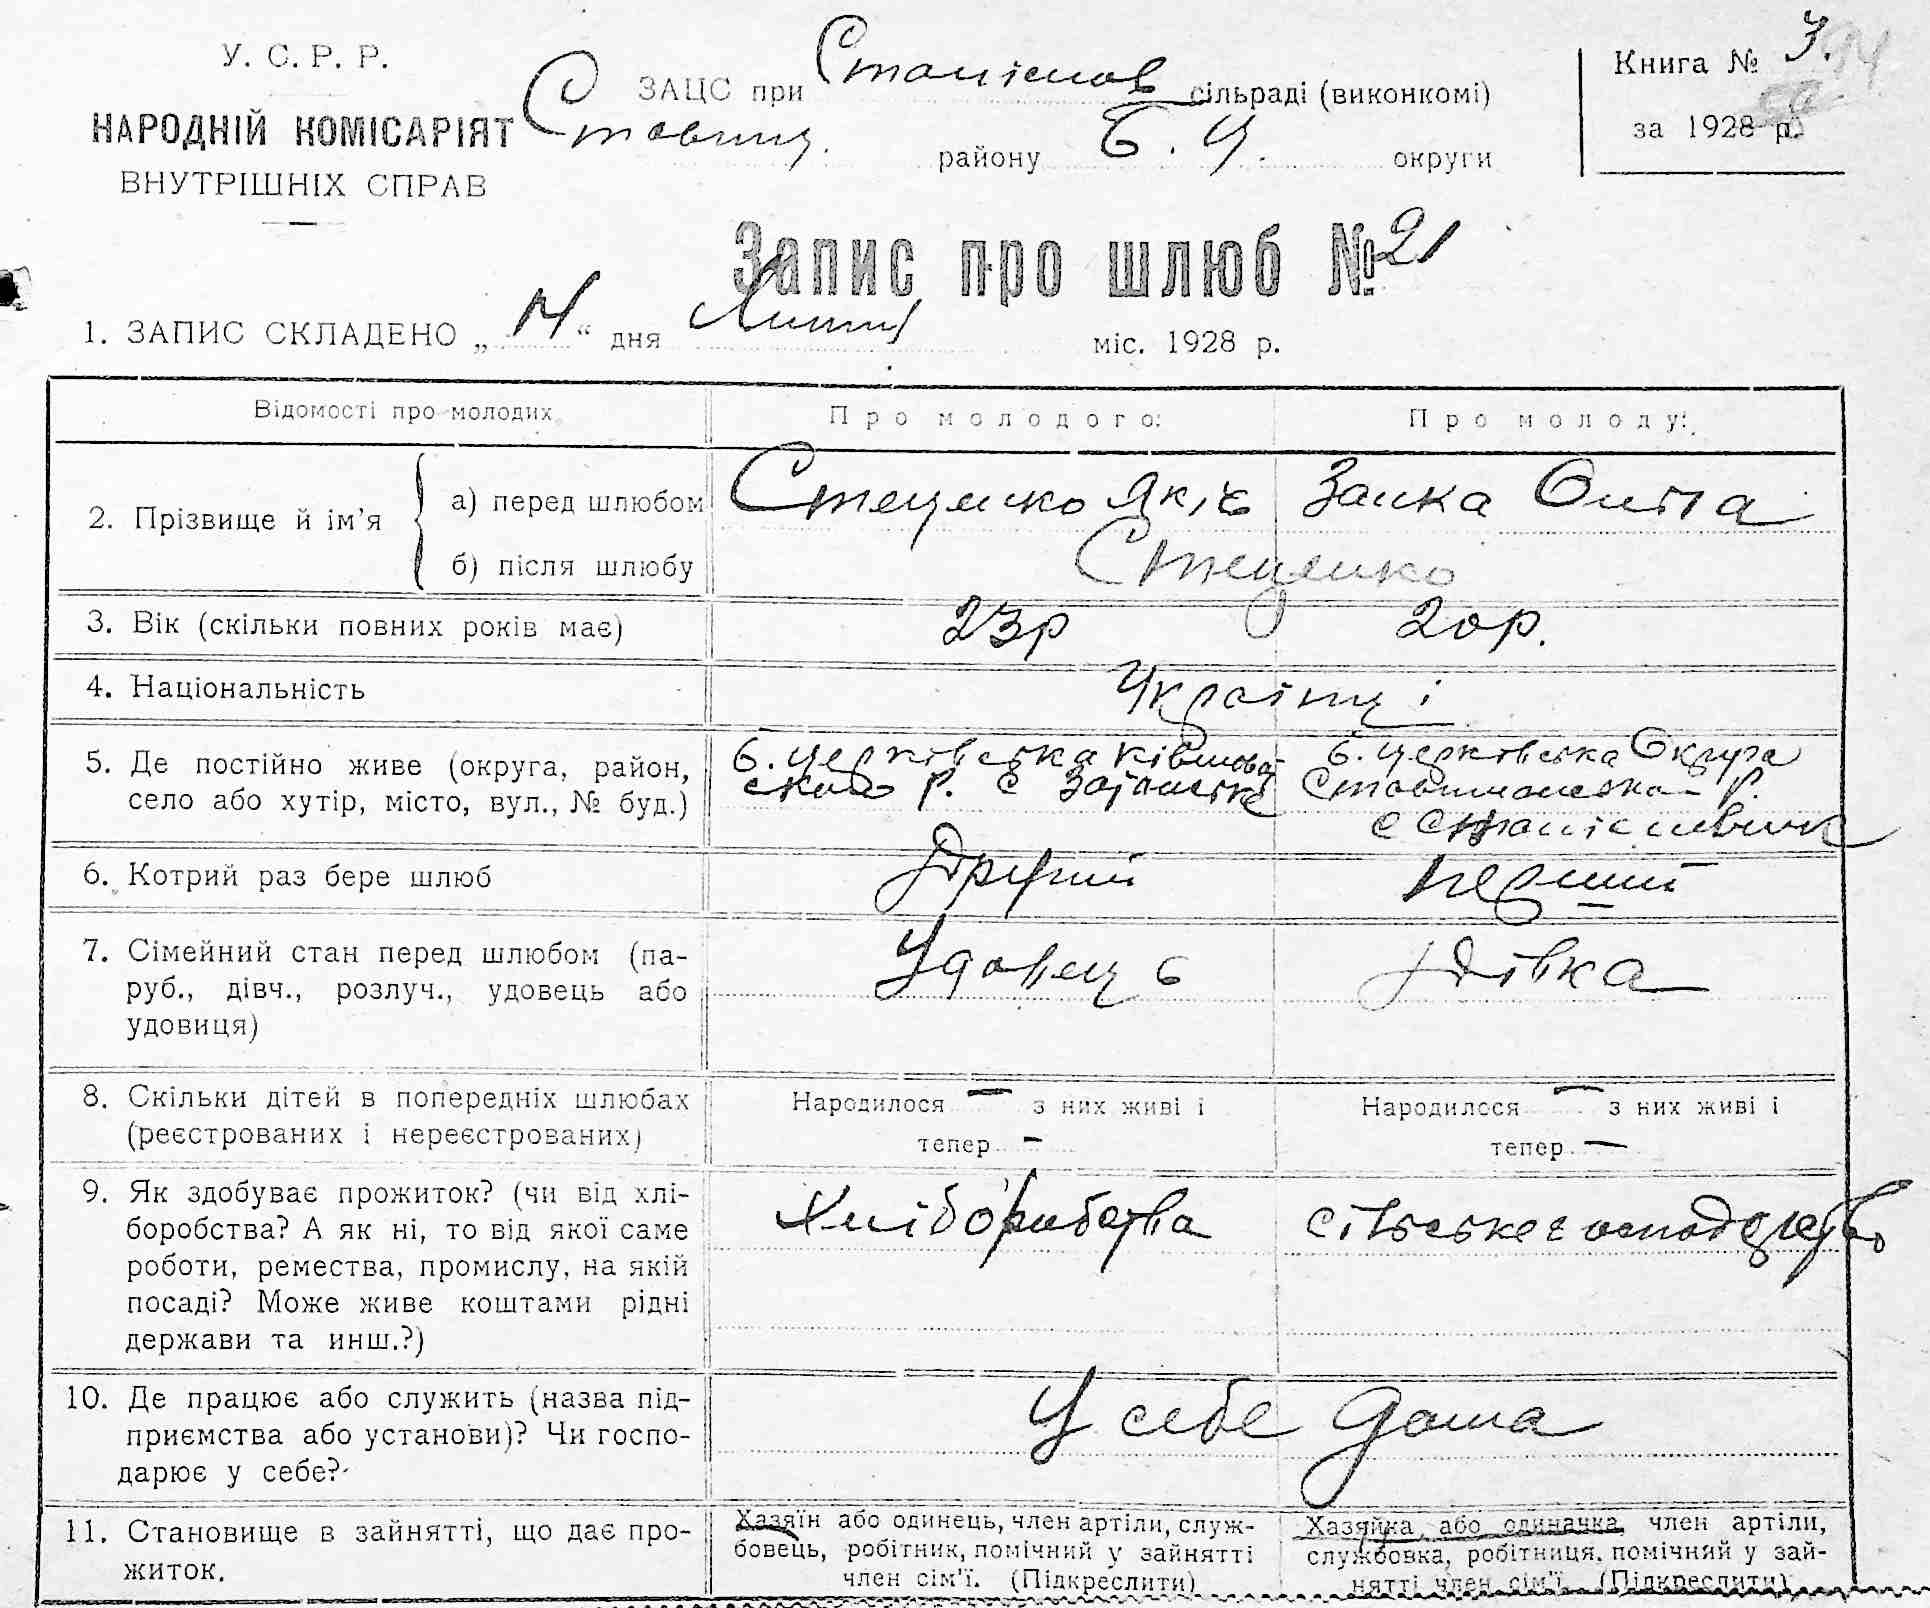 У. С. Р. Р.
НАРОДНІЙ КОМІСАРІЯТ
ВНУТРІШНІХ СПРАВ
ЗАЦС при Станіслав сільраді (виконкомі)
Ставищ. району Б. Ц. округи
Книга № 3.
за 1928 р.
Запис про шлюб № 21
1. ЗАПИС СКЛАДЕНО „14“ дня міс. 1928 р.
Відомості про молодих
Про молодого:
Про молоду:
2. Прізвище й ім'я
а) перед шлюбом Стеценко Яків Заика
б) після шлюбу Стеценко
3. Вік (скільки повних років має) 23р 20р.
4. Національність Українці
5. Де постійно живе (округа, район,
село або хутір, місто, вул., № буд.)
б. церківська
ского р. с
б. церківська Округа
р.
с
6. Котрий раз бере шлюб Другий перший
7. Сімейний стан перед шлюбом (па-
руб., дівч., розлуч., удовець або
удовиця)
Удовець дівка
8. Скільки дітей в попередніх шлюбах
(реєстрованих і нереєстрованих)
Народилося — з них живі і
тепер -
Народилося — з них живі і
тепер —
9. Як здобуває прожиток? (чи від хлі-
боробства? А як ні, то від якої саме
роботи, ремества, промислу, на якій
посаді? Може живе коштами рідні
держави та инш.?)
Хліборобства
сільське господарство
10. Де працює або служить (назва під-
приємства або установи)? Чи госпо-
дарює у себе?
У себе дома
11. Становище в зайнятті, що дає про-
житок.
Хазяїн або одинець, член артіли, служ-
бовець, робітник, помічний у зайнятті
член сім'ї. (Підкреслити)
Хазяйка або одиначка, член артіли,
службовка, робітниця, помічний у зай-
нятті член сім'ї. (Підкреслити)